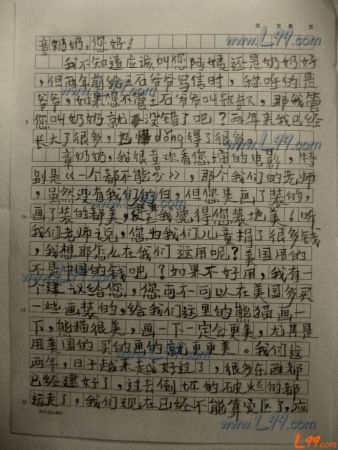 章奶奶,您好!
我不知道应该叫您阿姨还是奶奶好
,但两年前给石爷爷写信时,称呼的是
爷爷,如果您不管石爷爷叫叔叔,那我管
您叫奶奶就没错了吧?两年来我已经
长大了很多,也dong得了很多。
章奶奶,我很喜欢看您演的电影,特
别是《一个都不能少》,那个我们的老师
,虽然没有我们的白,但您是画了装的,
画了装的都美,我觉得您装地美!听
我们老师说,您为我们儿童捐了很多钱
,我想那怎么在我们这用呢?美国用的
不是中国的钱吧!?如果不好用,我有一
个建议给您,您可不可以在美国多买
一些画装的,给我们这里的熊猫画一
下,熊猫很美,画一下一定会更美,尤其是
用美国的买的画的就更更美。我们这
两年,日子越来越好过了,很多东西都
已经建好了,过去倒坏的破烂的都
运走了,我们现在已经不能算灾区了,应
20×20=400
www.L99.com
www.L99.com
www.L99.com
www.L99.com
L99.com